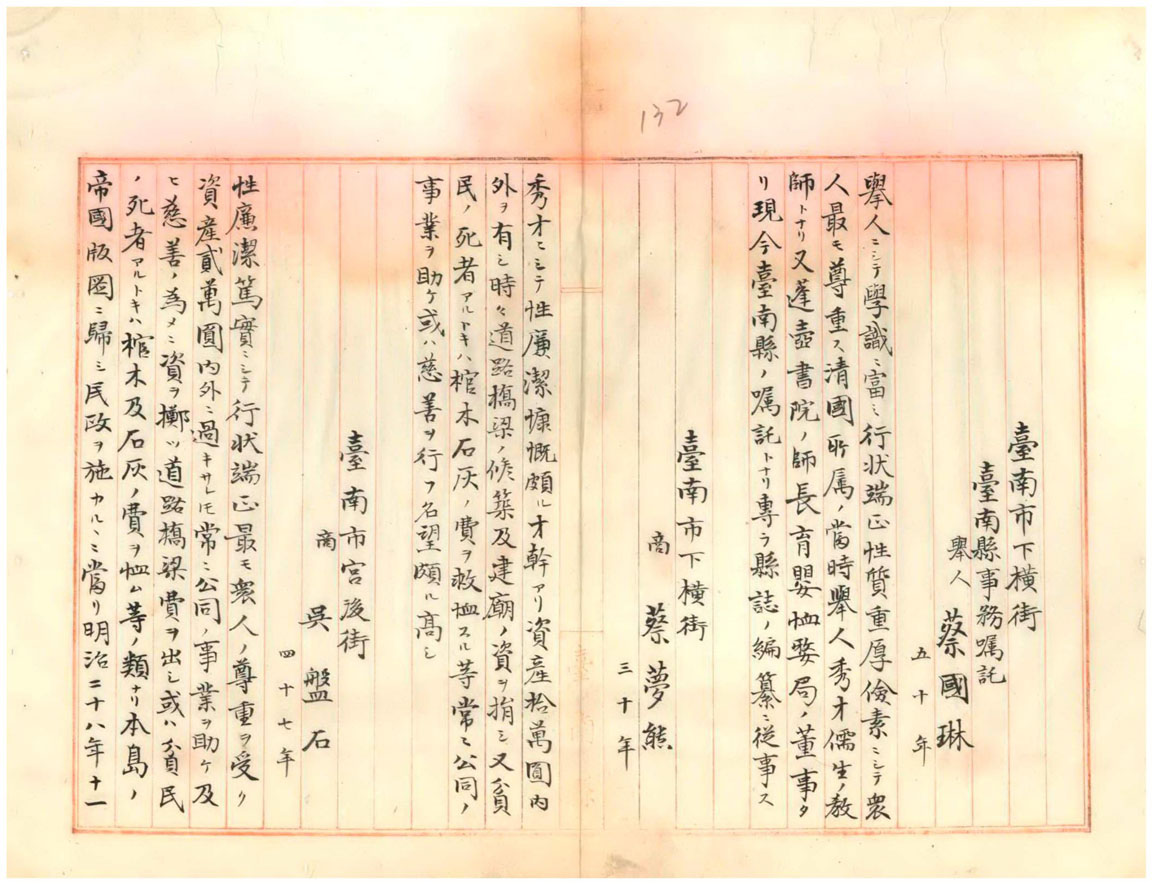 132
臺南市下横街
臺南縣事務嘱託
擧人 蔡國琳
五十年
擧人ニシテ學識ニ富ミ行状端正性質重厚儉素ニシテ衆
人最モ尊重ス清國所属ノ當時擧人秀才儒生ノ教
師トナリ又蓬壺書院ノ師長育嬰恤嫠局ノ董事タ
リ現今臺南縣ノ嘱託トナリ專ラ縣誌ノ編纂ニ従事ス
臺南市下横街
商 蔡夢熊
三十年
秀才ニシテ性廉潔慷慨頗ル才幹アリ資産拾萬圓内
外ヲ有シ時々道路橋梁ノ修築及建廟ノ資ヲ捐シ又貧
民ノ死者アルトキハ棺木石灰ノ費ヲ救恤スル等常ニ公同ノ
事業ヲ助ケ或ハ慈善ヲ行フ名望頗ル高シ
臺南市宮後街
商 吳盤石
四十七年
性廉潔篤實ニシテ行状端正最モ衆人ノ尊重ヲ受ク
資産貳萬圓内外ニ過キサレモ常ニ公同ノ事業ヲ助ケ及
ヒ慈善ノ為メニ資ヲ擲ツ道路橋梁費ヲ出シ或ハ貧民
ノ死者アルトキハ棺木及石灰ノ費ヲ恤ム等ノ類ナリ本島ノ
帝國版圖ニ歸シ民政ヲ施カルヽニ當リ明治二十八年十一